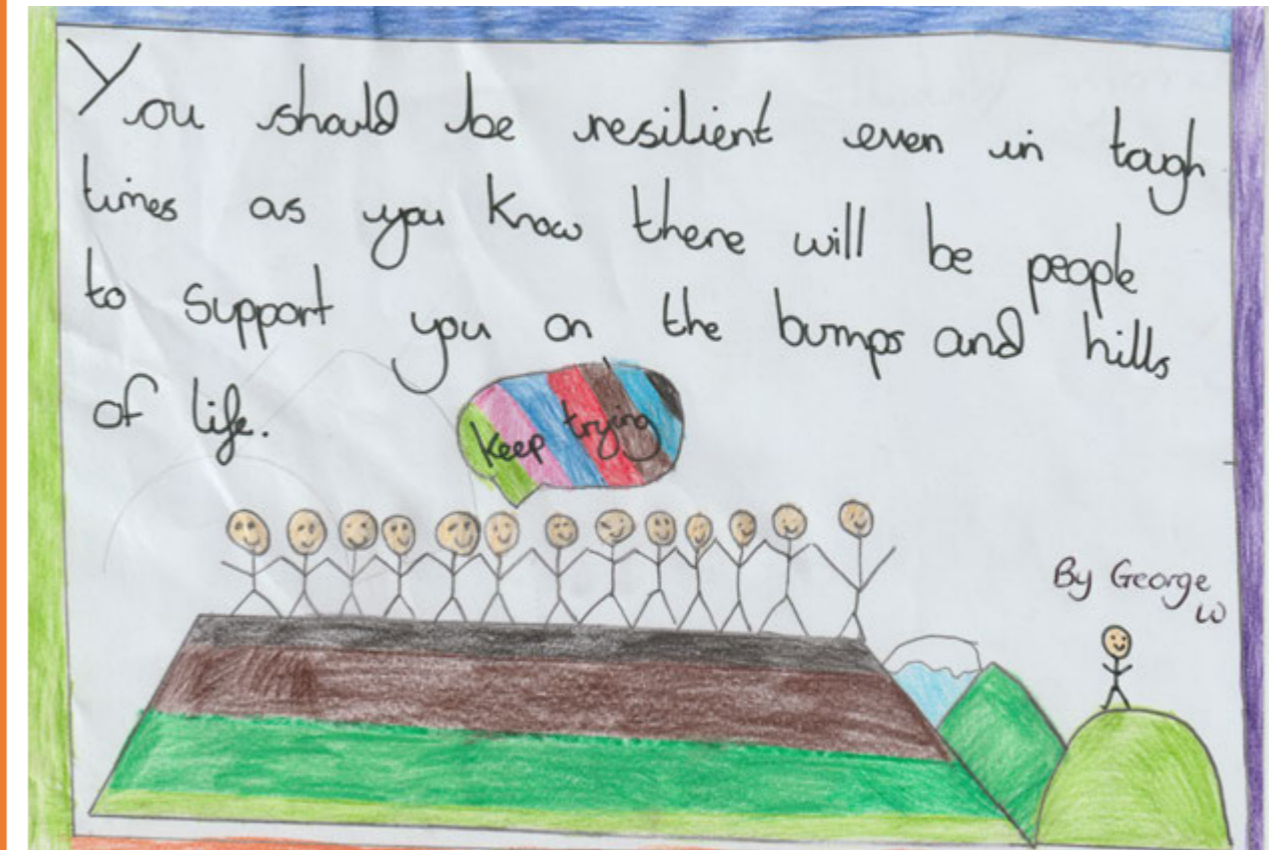 You should be resilient even in tough
times as you know there will be people
to support you on the bumps and hills
of life.
keep trying
By George
W